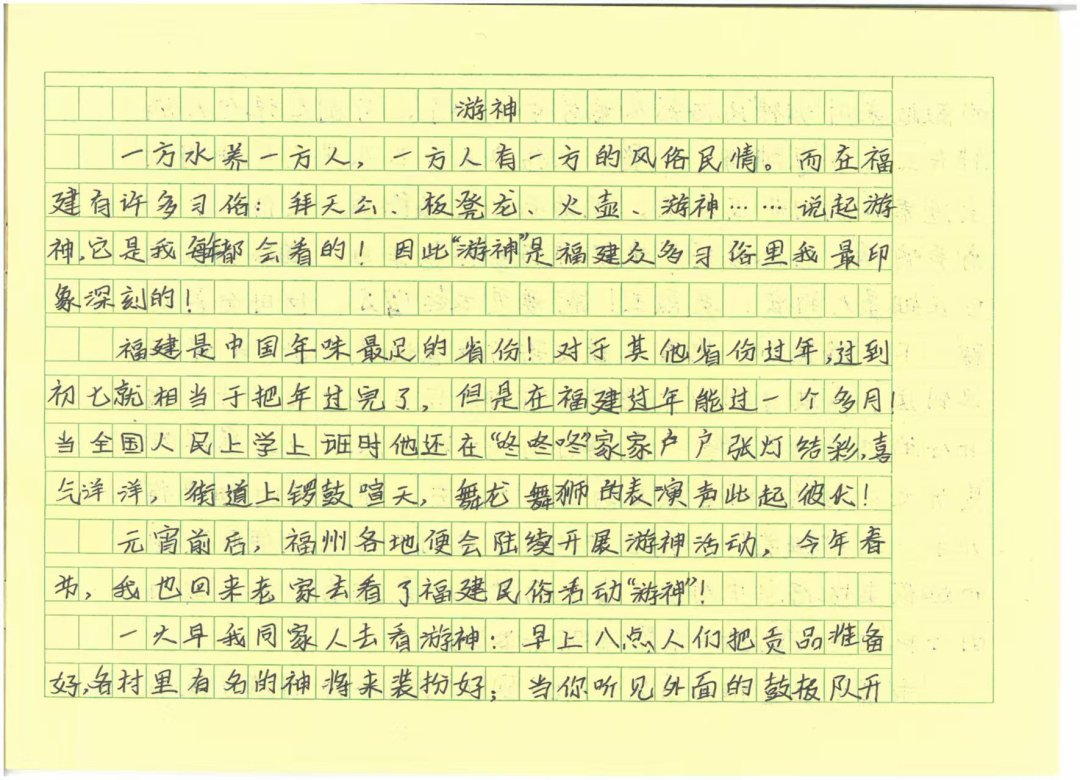 游神
一方水养一方人，一方人有一方的风俗民情。而在福
建有许多习俗：拜天公、板凳龙、火壶、游神……说起游
神，它是我每年都会看的！因此“游神”是福建众多习俗里我最印
象深刻的！
福建是中国年味最足的省份！对于其他省份过年，过到
初七就相当于把年过完了，但是在福建过年能过一个多月！
当全国人民上学上班时他还在“咚咚咚”家家户户张灯结彩，喜
气洋洋，街道上锣鼓喧天，舞龙舞狮的表演声此起彼伏！
元宵前后，福州各地便会陆续开展游神活动，今年春
节，我也回来老家去看了福建民俗活动“游神”！
一大早我同家人去看游神：早上八点人们把贡品准备
好，各村里有名的神将来装扮好；当你听见外面的鼓板队开